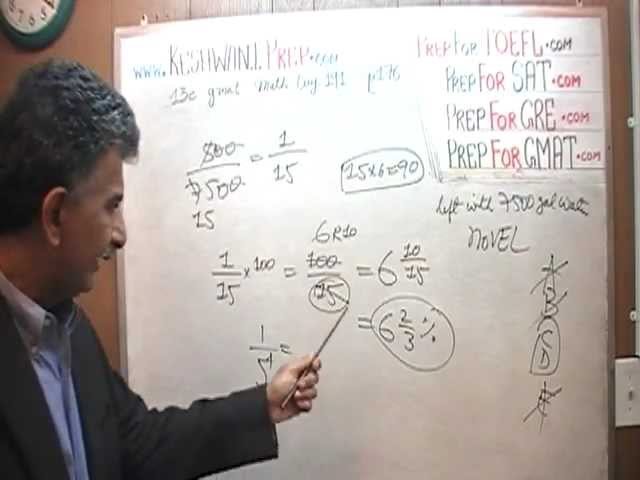 www.KESHWANIPREP.com
13e gmat Math Log 191 p176
PREPFOR TOEFL.COM
PREPFOR SAT.COM
PREPFOR GRE.COM
PREPFOR GMAT.COM
800/7500 = 1/15
15
15x6=90
left with 7500 gal water
NOVEL
6R10
1/15 x 100 = 100/15 = 6 10/15
= 6 2/3 %
1/5 =
A
B
C
D